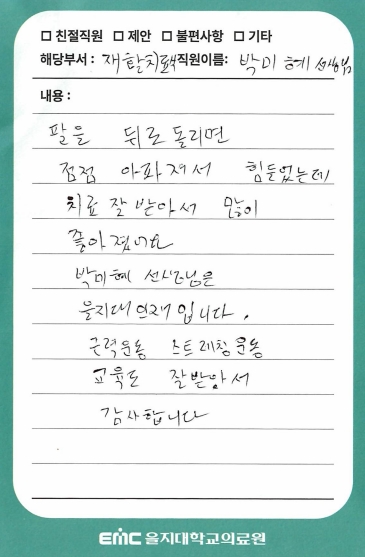 □ 친절직원 □ 제안 □ 불편사항 □ 기타
해당부서 : 재활치료 직원이름: 박미혜 선생님
내용 :
팔을 뒤로 돌리면
점점 아파져서 힘들었는데
치료 잘 받아서 많이
좋아졌어요
박미혜 선생님은
을지대 인재입니다.
근력운동 스트레칭운동
교육도 잘받아서
감사합니다
EMC 을지대학교의료원